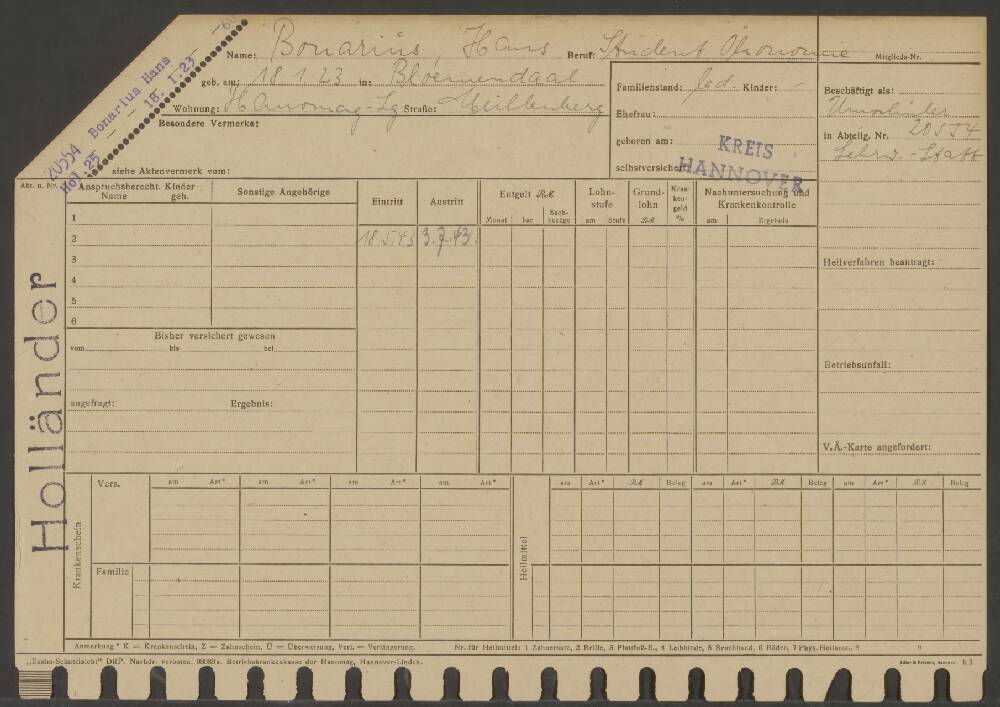 20554 Bonarius Hans
Hol. 25 – – 18. 1. 23 – – 60
Name: Bonarius Hans Beruf: Student Ökonomie Mitglieds-Nr.
geb. am: 18 1. 23 in: Bloemendaal
Wohnung: Hanomag-Lg Straße: Müllenberg
Besondere Vermerke:
siehe Aktenvermerk vom:
Familienstand: led. Kinder: –
Ehefrau:
geboren am:
selbstversichert
KREIS
HANNOVER
Beschäftigt als:
in Abteilg. Nr. 20554
Abr. u. Nr. Anspruchsberecht. Kinder Sonstige Angehörige Eintritt Austritt Entgelt RM Lohn-stufe Grund-lohn Kran-ken-geld % Nachuntersuchung und Krankenkontrolle
Name geb. Monat bar Sach-bezüge am Stufe RM am Ergebnis
1
2 18.5.43 3.7.43.
3
4
5
6
Holländer
Bisher versichert gewesen
vom bis bei
angefragt: Ergebnis:
Heilverfahren beantragt:
Betriebsunfall:
V.Ä.-Karte angefordert:
Krankenschein
Vers. am Art* am Art* am Art* am Art*
Familie
Heilmittel
am Art* RM Beleg am Art* RM Beleg am Art* RM Beleg
Anmerkung * K = Krankenschein, Z = Zahnschein, Ü = Überweisung, Verl. = Verlängerung. Nr. für Heilmittel: 1 Zahnersatz, 2 Brille, 3 Plattfuß-E., 4 Leibbinde, 5 Bruchband, 6 Bäder, 7 Phys. Heilanst., 8 9
„Ekaha-Schnellsicht" DRP. Nachdr. verboten. Betriebskrankenkasse der Hanomag, Hannover-Linden.